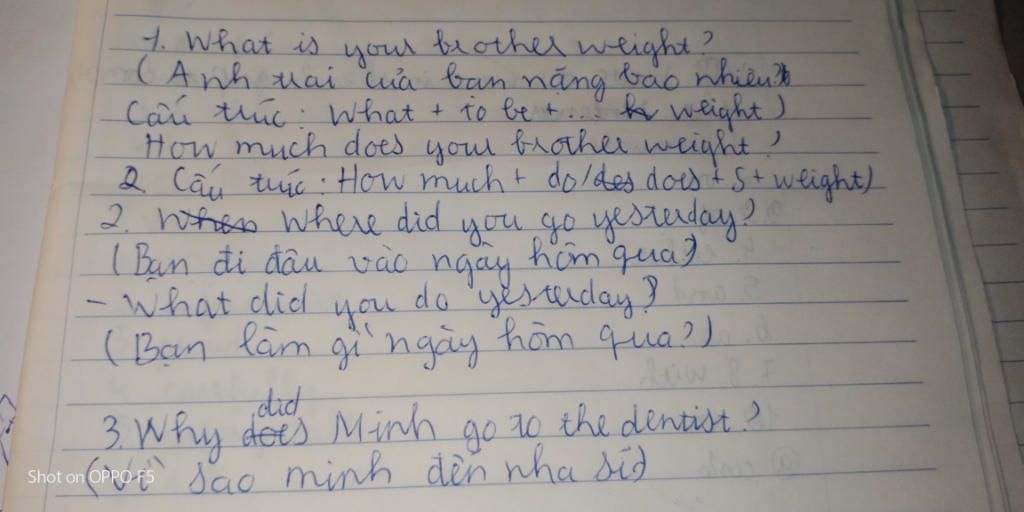 1. What is your brother weight?
(Anh trai của bạn nặng bao nhiêu?)
Cấu trúc: What + to be + ... weight)
How much does your brother weight?
2 Cấu trúc: How much + do/des does + S + weight)
2. When Where did you go yesterday?
(Bạn đi đâu vào ngày hôm qua)
- What did you do yesterday?
(Bạn làm gì ngày hôm qua?)
did
3. Why does Minh go to the dentist?
(Vì sao minh đến nha sĩ)
Shot on OPPO F5